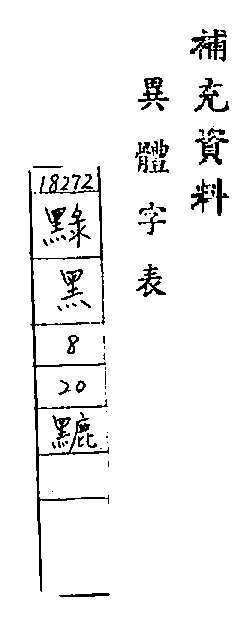 補充資料
異體字表
18272
黑
8
20